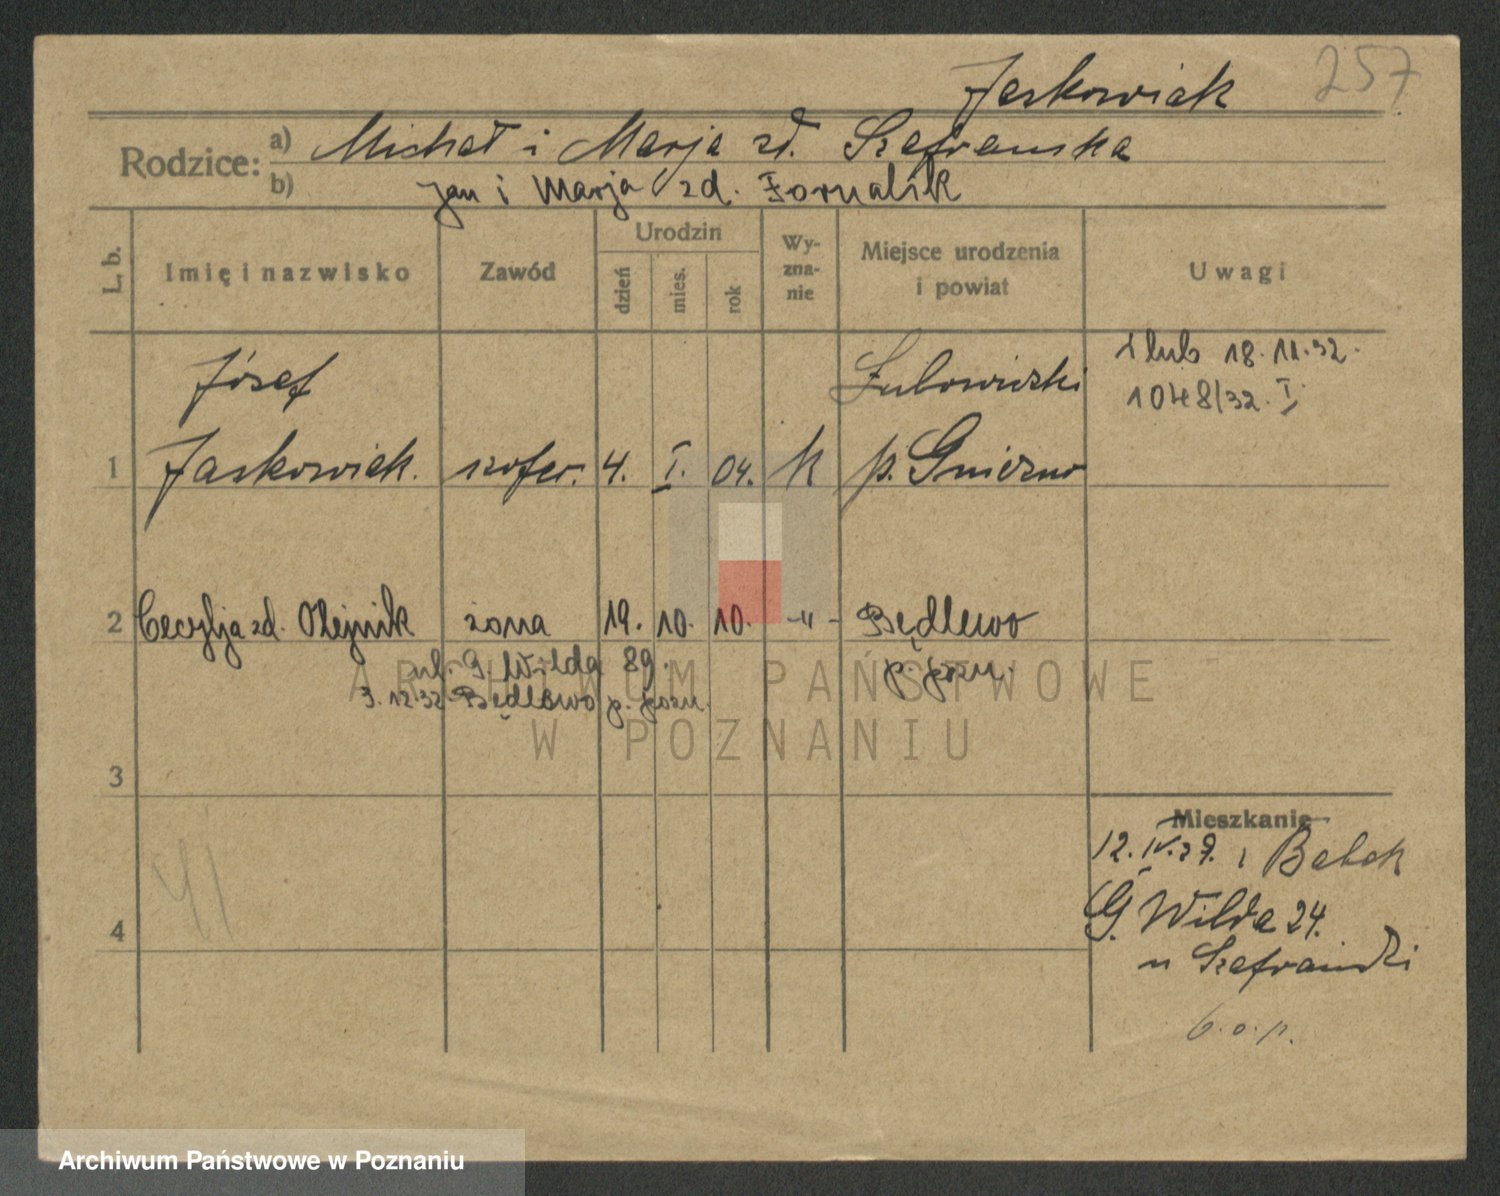 Jaskowiak 257
Rodzice: a) Michał i Marja zd. Szafrańska
b) Jan i Marja zd. Fornalik
L. b.
Imię i nazwisko
Zawód
Urodzin
dzień
mies.
rok
Wy-
zna-
nie
Miejsce urodzenia
i powiat
Uwagi
Józef
Jaskowiak.
1
szofer.
4.
I.
04.
k
p. Gniezno
ślub 18. 11. 32.
1048/32. I.
2
Cecylja zd. Olejnik
żona
19.
10.
10.
-"-
Będlewo
p. pozn.
ul. G. Wilda 89.
3. 12. 32. Będlewo p. pozn.
3
4
41
Mieszkanie
12. IV. 27. z Babek
G. Wilda 24.
u Szafrański
b. o. p.
ARCHIWUM PAŃSTWOWE
W POZNANIU
Archiwum Państwowe w Poznaniu